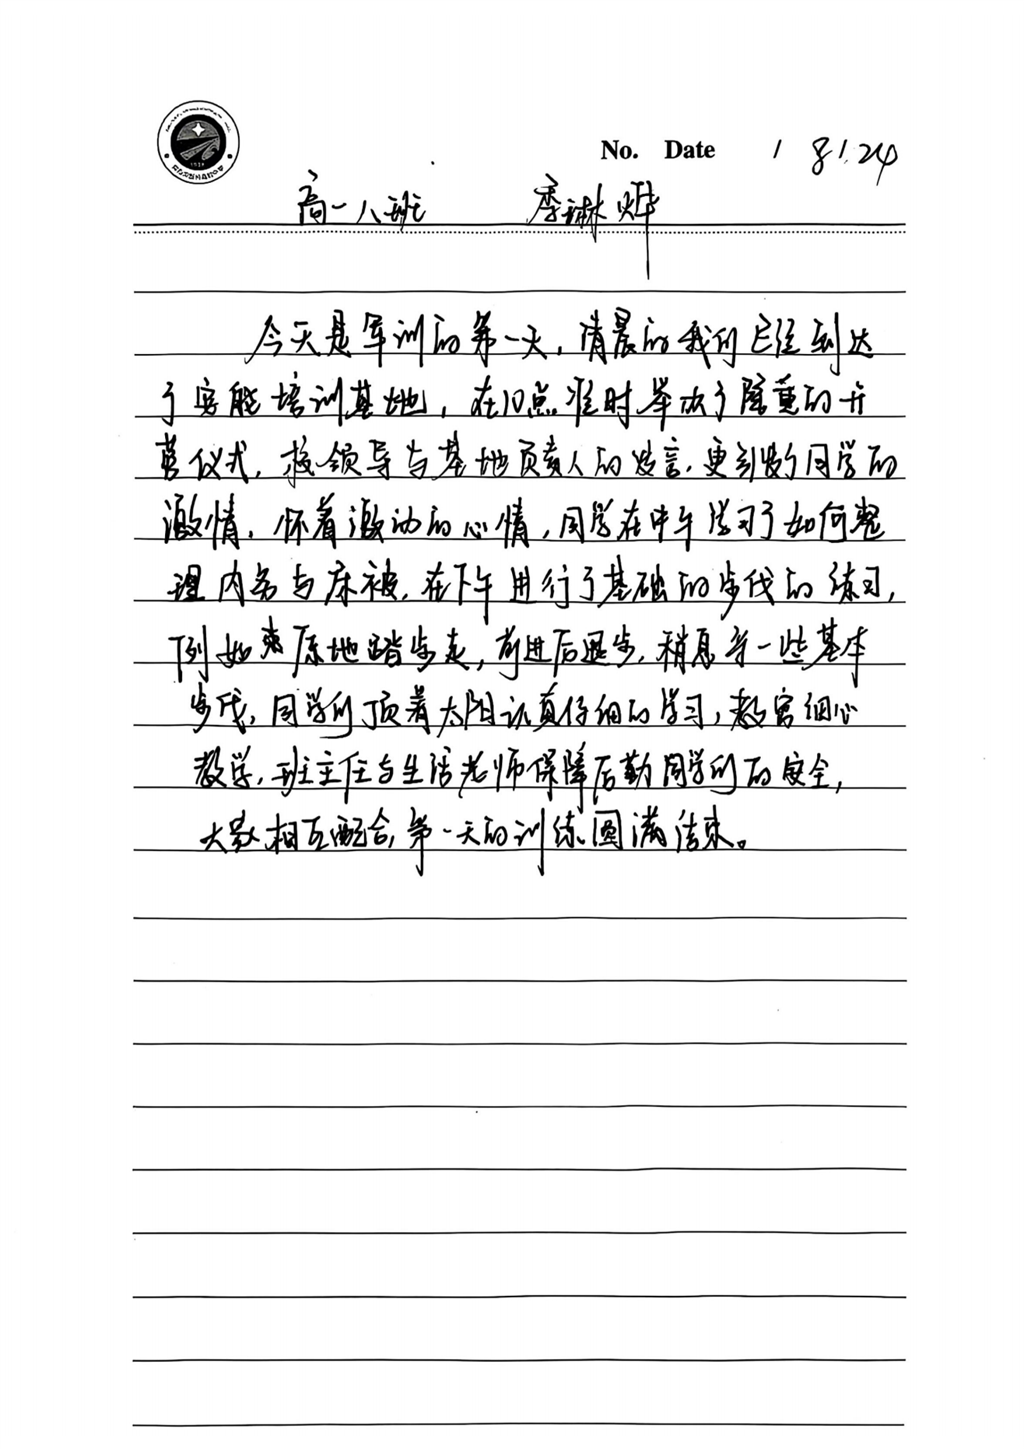 No. Date 1 8.1.24
高一八班 李琳烨
今天是军训的第一天，清晨的我们已经到达
了实能培训基地，在10点准时举办了隆重的开
营仪式，校领导与基地负责人的发言，更引发了同学的
激情，怀着激动的心情，同学在中午学习了如何整
理内务与床被，在下午进行了基础的步伐的练习，
例如来原地踏步走，前进后退步，稍息等一些基本
步伐，同学们顶着太阳认真仔细的学习，教官细心
教学，班主任与生活老师保障后勤同学们的安全，
大家相互配合，第一天的训练圆满结束。